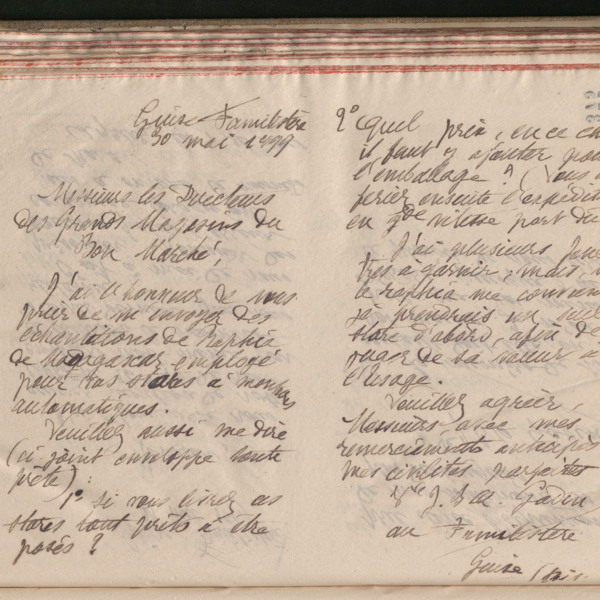 Guise Familistère
30 mai 1899
Messieurs les Directeurs
des Grands Magasins du
Bon Marché,
J'ai l'honneur de vous
prier de m'envoyer des
échantillons de Raphia
de Madagascar employé
pour vos stores à montures
automatiques.
Veuillez aussi me dire
(ci-joint enveloppe toute
prête) :
1º si vous livrez ces
stores tout prêts à être
posés ?
2º à quel prix, en ce
il faut y ajouter pour
l'emballage ? (Vous
feriez ensuite l'expédit
en gde vitesse port du
J'ai plusieurs
tres à garnir, mais,
le raphia me convien
je prendrais un seul
store d'abord, afin de
juger de sa valeur à
l'usage.
Veuillez agréer,
Messieurs, avec mes
remerciements anticipés
mes civilités parfaites
Vve J. B. A. Godin
au Familistère
Guise